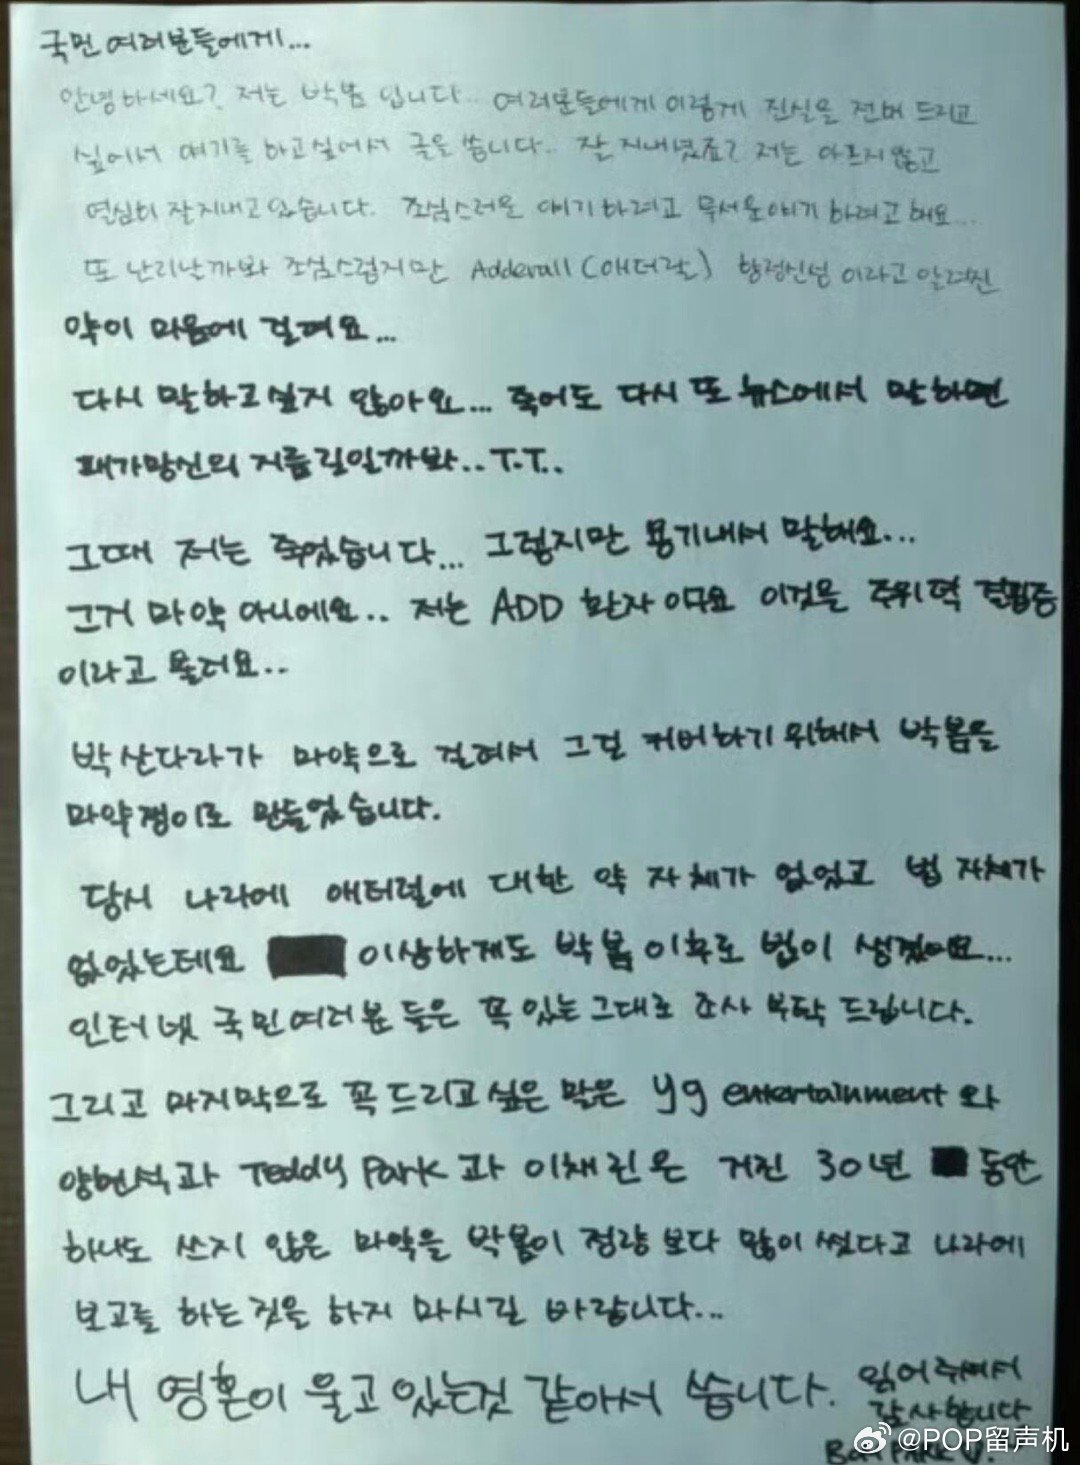 국민 여러분들에게...
안녕하세요? 저는 박봄 입니다.. 여러분들에게 이렇게 진실을 전해 드리고
싶어서 얘기를 하고싶어서 글을 씁니다.. 잘 지내셨죠? 저는 아프지 않고
열심히 잘지내고 있습니다. 조심스러운 얘기하려고 무서운얘기 하려고 해요...
또 난리날까봐 조심스럽지만 Adderall (애더럴) 향정신성 이라고 알려진
약이 마음에 걸려요...
다시 말하고싶지 않아요... 죽어도 다시 또 뉴스에서 말하면
패가망신의 지름길일까봐.. T.T..
그때 저는 죽었습니다... 그렇지만 용기내서 말해요...
그거 마약 아니에요.. 저는 ADD 환자이구요 이것을 주위력 결핍증
이라고 불러요..
박산다라가 마약으로 걸려서 그걸 커버하기위해서 박봄을
마약쟁이로 만들었습니다.
당시 나라에 애터럴에 대한 약 자체가 없었고 법 자체가
없었는데요 이상하게도 박봄 이후로 법이 생겼어요...
인터넷 국민여러분 들은 꼭 있는그대로 조사 부탁 드립니다.
그리고 마지막으로 꼭 드리고싶은 말은 yg entertainment 와
양현석과 Teddy Park 과 이채린은 거진 30년 동안
하나도 쓰지 않은 마약을 박봄이 정량 보다 많이 썼다고 나라에
보고를 하는것을 하지 마시길 바랍니다...
내 영혼이 울고있는것 같아서 씁니다. 읽어주셔서
감사합니다
Bom PARK
@POP留声机